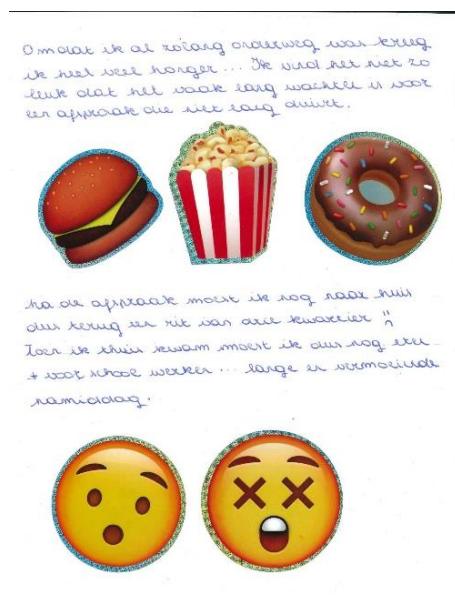 Omdat ik al zolang onderweg was kreeg
ik heel veel honger... Ik vind het niet zo
leuk dat het vaak lang wachten is voor
een afspraak die niet lang duurt.
Na de afspraak moest ik nog naar huis
dus terug een rit van drie kwartier
Toen ik thuis kwam moest ik dus nog eten
+ voor school werken... lange en vermoeiende
namiddag.